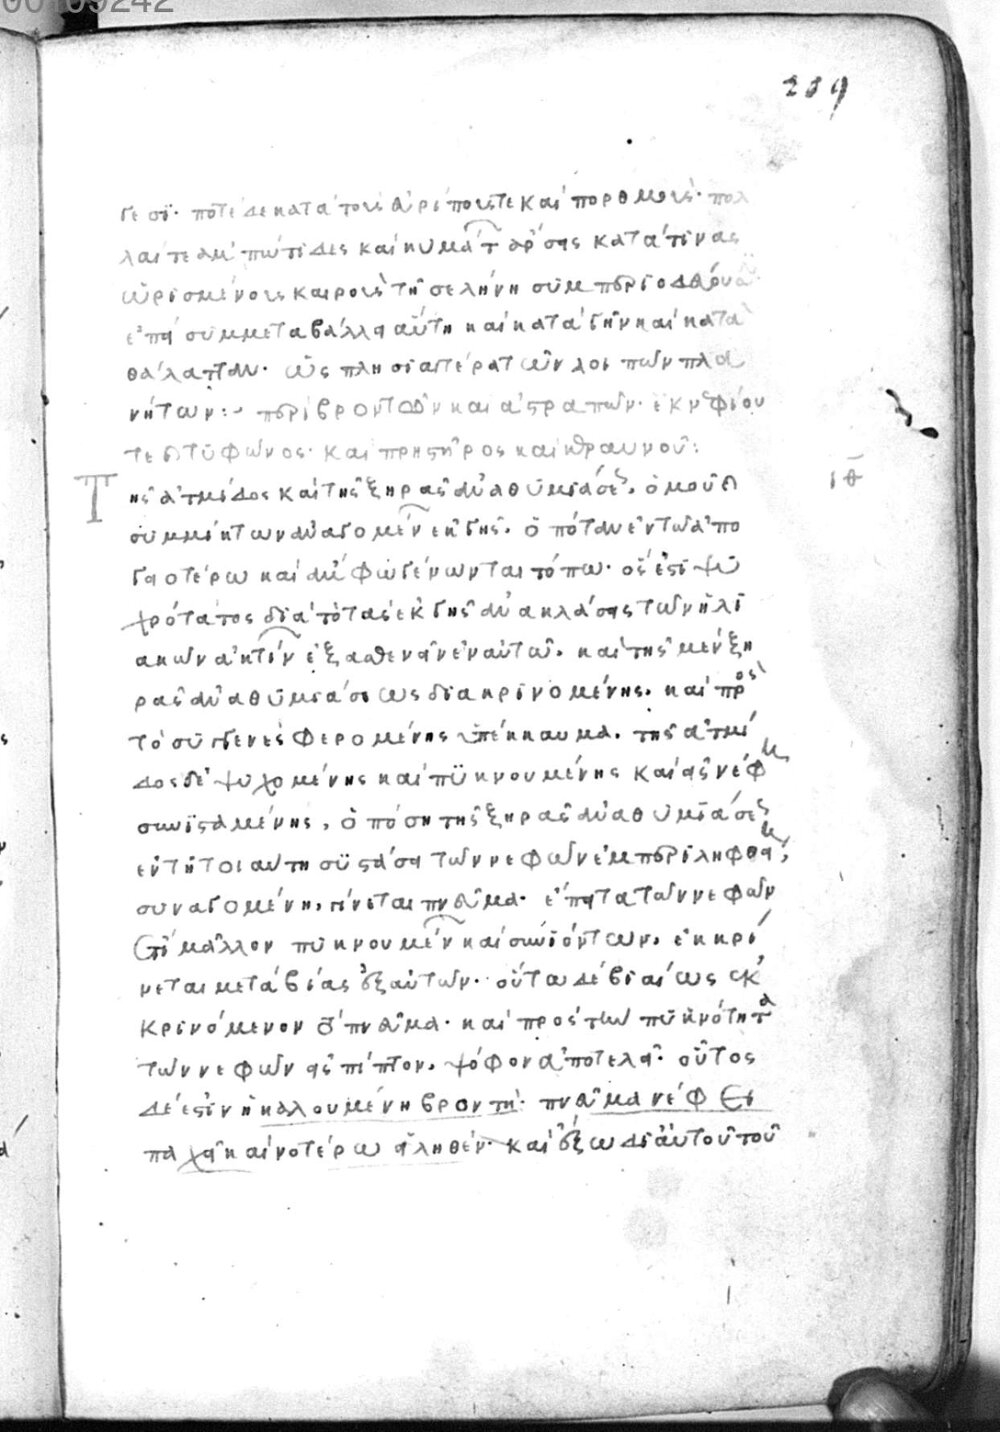 00109242
239
γεσι· ποτὲ δὲ κατὰ τοὺς εὐρίπους τε καὶ πορθμοὺς· πολ
λαί τε ἀμπώτιδες καὶ κυμάτ ἄρσεις κατά τινας
ὡρισμένους καιροὺς τῆ σελήνη συμπεριοδευού
ἐπεὶ συμμεταβάλλει αὐτῆ καὶ κατὰ γῆν καὶ κατὰ
θάλατταν· ὡς πλησιαιτέρα τῶν λοιπῶν πλα
νήτων:- περὶ βροντῶν καὶ ἀστραπῶν· ἐκνεφίου
τε καὶ τυφῶνος· καὶ πρηστῆρος καὶ κεραυνοῦ:
Τῆς ἀτμίδος καὶ τῆς ξηρᾶς ἀναθυμιάσεως, ὁμοῦ καὶ
συμμίκτων ἀναγομένων ἐκ γῆς, ὁπόταν ἐν τῶ ἀπο
γειοτέρω καὶ ἄμφω γένωνται τόπω· ὅς ἐστι ψυ
χρότατος διὰ τὸ τὰς ἐκ γῆς ἀνακλάσεις τῶν ἡλι
ακῶν ἀκτίνων ἐξασθενεῖν ἐν αὐτῶ, καὶ τῆς μὲν ξη
ρᾶς ἀναθυμιάσεως διακρινομένης, καὶ πρὸς
τὸ συγγενὲς φερομένης ὑπέκκαυμα, τῆς ἀτμί
δος δὲ ψυχομένης καὶ πυκνουμένης καὶ εἰς νέφη
συνισταμένης, ὁπόση τῆς ξηρᾶς ἀναθυμιάσεως
ἐν τῆ τοιαύτη συστάσει τῶν νεφῶν ἐμπεριληφθείη,
συναγομένη, γίνεται πνεῦμα· ἔπειτα τῶν νεφῶν
ἔτι μᾶλλον πυκνουμένων καὶ συνιόντων, ἐκκρί
νεται μετὰ βίας ἐξ αὐτῶν· οὕτω δὲ βιαίως ἐκ
κρινόμενον τὸ πνεῦμα· καὶ πρὸς τὴν πυκνότητα
τῶν νεφῶν εἰσπίπτον, ψόφον ἀποτελεῖ· οὗτος
δέ ἐστιν ἡ καλουμένη βροντή· πνεῦμα νέφει
παχεῖ καινοτέρω εἰληθέν· καὶ ἔξω δι' αὐτοῦ τοῦ
ιθ